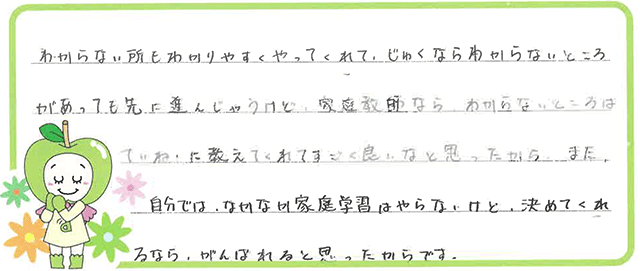 わからない所もわかりやすくやってくれて、じゅくならわからないところ
があっても先に進んじゃうけど、家庭教師なら、わからないところは
ていねいに教えてくれてすごく良いなと思ったから。また、
自分では、なかなか家庭学習はやらないけど、決めてくれ
るなら、がんばれると思ったからです。